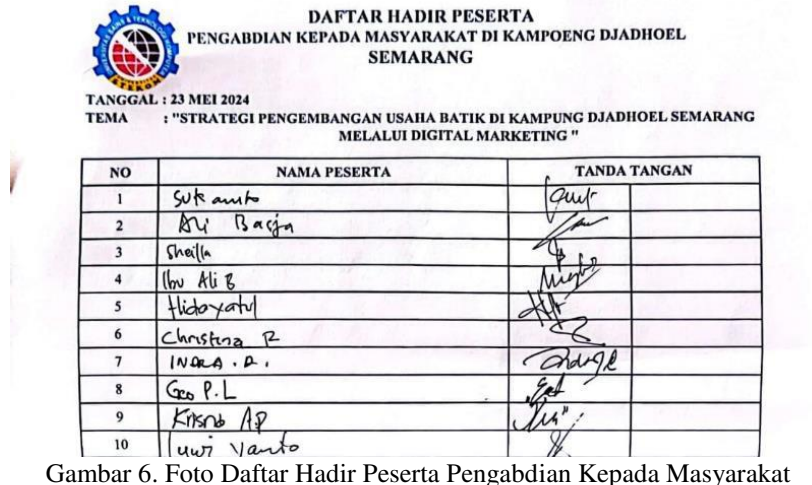 DAFTAR HADIR PESERTA
PENGABDIAN KEPADA MASYARAKAT DI KAMPOENG DJADHOEL
SEMARANG
TANGGAL : 23 MEI 2024
TEMA : "STRATEGI PENGEMBANGAN USAHA BATIK DI KAMPUNG DJADHOEL SEMARANG
MELALUI DIGITAL MARKETING "
NO NAMA PESERTA TANDA TANGAN
1 Sukamto
2 Ali Basja
3 Sheilla
4 Ibu Ali B
5 Hidayatul
6 Christina R
7 INDRA . A .
8 Geo P.L
9 Krisno A.P
10 Yanto
Gambar 6. Foto Daftar Hadir Peserta Pengabdian Kepada Masyarakat